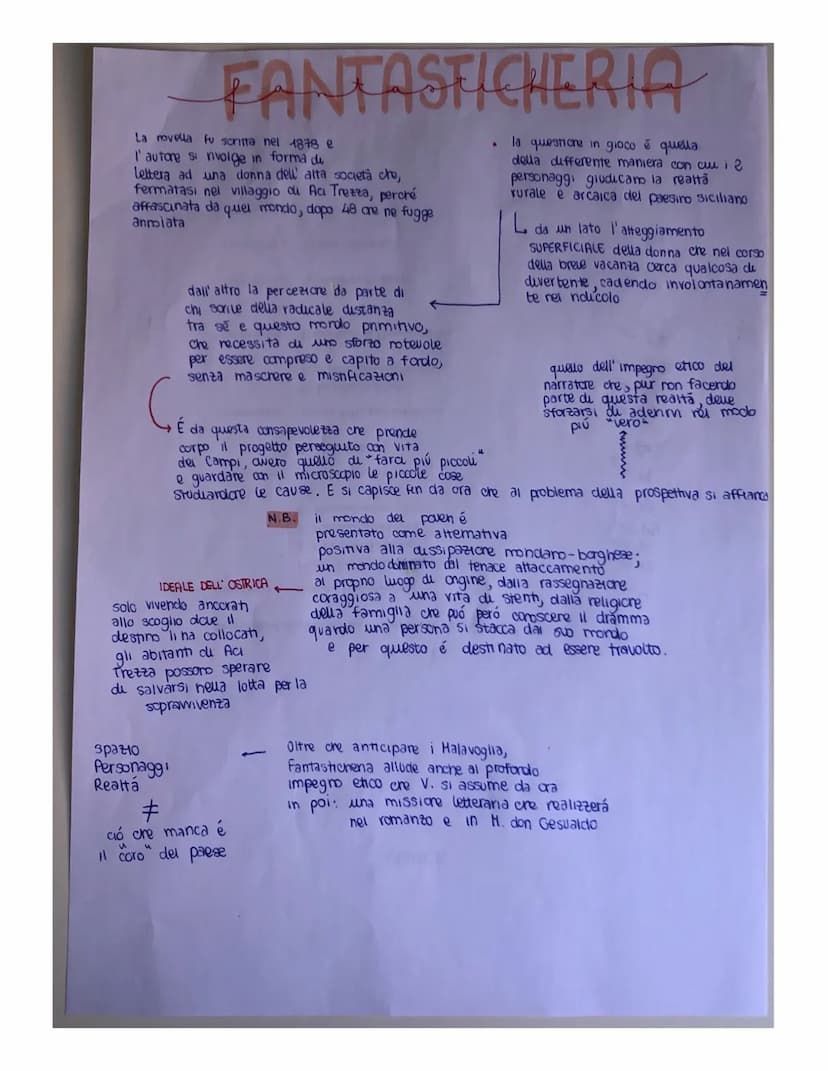 FANTASTICHERIA
fantasticheria
La novella fu scritta nel 1878 e
l'autore si rivolge in forma di
lettera ad una donna dell'alta società che,
fermatasi nel villaggio di Aci Trezza, perché
affascinata da quel mondo, dopo 48 ore ne fugge
annoiata
• la questione in gioco é quella
della differente maniera con cui i 2
personaggi giudicano la realtá
rurale e arcaica del paesino siciliano
da un lato l'atteggiamento
SUPERFICIALE della donna che nel corso
della breve vacanza cerca qualcosa di
divertente, cadendo involontariamen
te nel ridicolo
dall'altro la percezione da parte di
chi scrive della radicale distanza
tra sé e questo mondo primitivo,
che necessita di uno sforzo notevole
per essere compreso e capito a fondo,
senza maschere e mistificazioni
É da questa consapevolezza che prende
corpo il progetto perseguito con Vita
dei Campi, ovvero quello di "farci piú piccoli"
e guardare con il microscopio le piccole cose
studiandone le cause. E si capisce fin da ora che al problema della prospettiva si affianca
quello dell'impegno etico del
narratore che, pur non facendo
parte di questa realtá, deve
sforzarsi di aderirvi nel modo
piú "vero"
N.B. il mondo dei poveri é
presentato come alternativa
positiva alla dissipazione mondano-borghese;
un mondo dominato dal tenace attaccamento
al proprio luogo di origine, dalla rassegnazione
coraggiosa a una vita di stenti, dalla religione
della famiglia che puó peró conoscere il dramma
quando una persona si stacca dal suo mondo
e per questo é destinato ad essere travolto.
IDEALE DELL'OSTRICA
solo vivendo ancorati
allo scoglio dove il
destino li ha collocati,
gli abitanti di Aci
Trezza possono sperare
di salvarsi nella lotta per la
sopravvivenza
Oltre che anticipare i Malavoglia,
Fantasticheria allude anche al profondo
impegno etico che V. si assume da ora
in poi: una missione letteraria che realizzerá
nel romanzo e in M. don Gesualdo
spazio
Personaggi
Realtá
≠
ció che manca é
il "coro" del paese